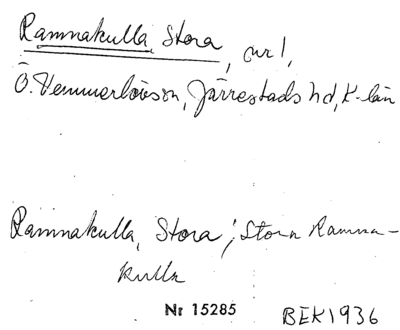 Ramnakulla, Stora, nr 1,
Ö. Vemmerlövs sn, Järrestads hd, K-län
Ramnakulla, Stora; Stora Ramna-
kulla
Nr 15285 BEK1936